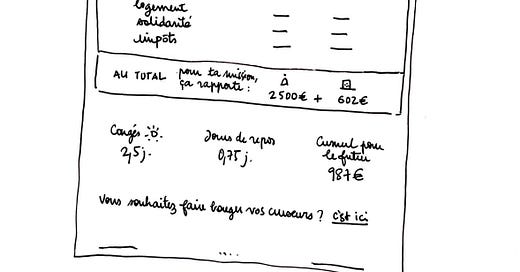 logement
solidarité
impôts
AU TOTAL pour ta mission,
ça rapporte :
2500€ + 602€
Congés
2,5j.
Jours de repos
0,75 j.
Cumul pour
le futur
987€
Vous souhaitez faire bouger vos curseurs ? c'est ici